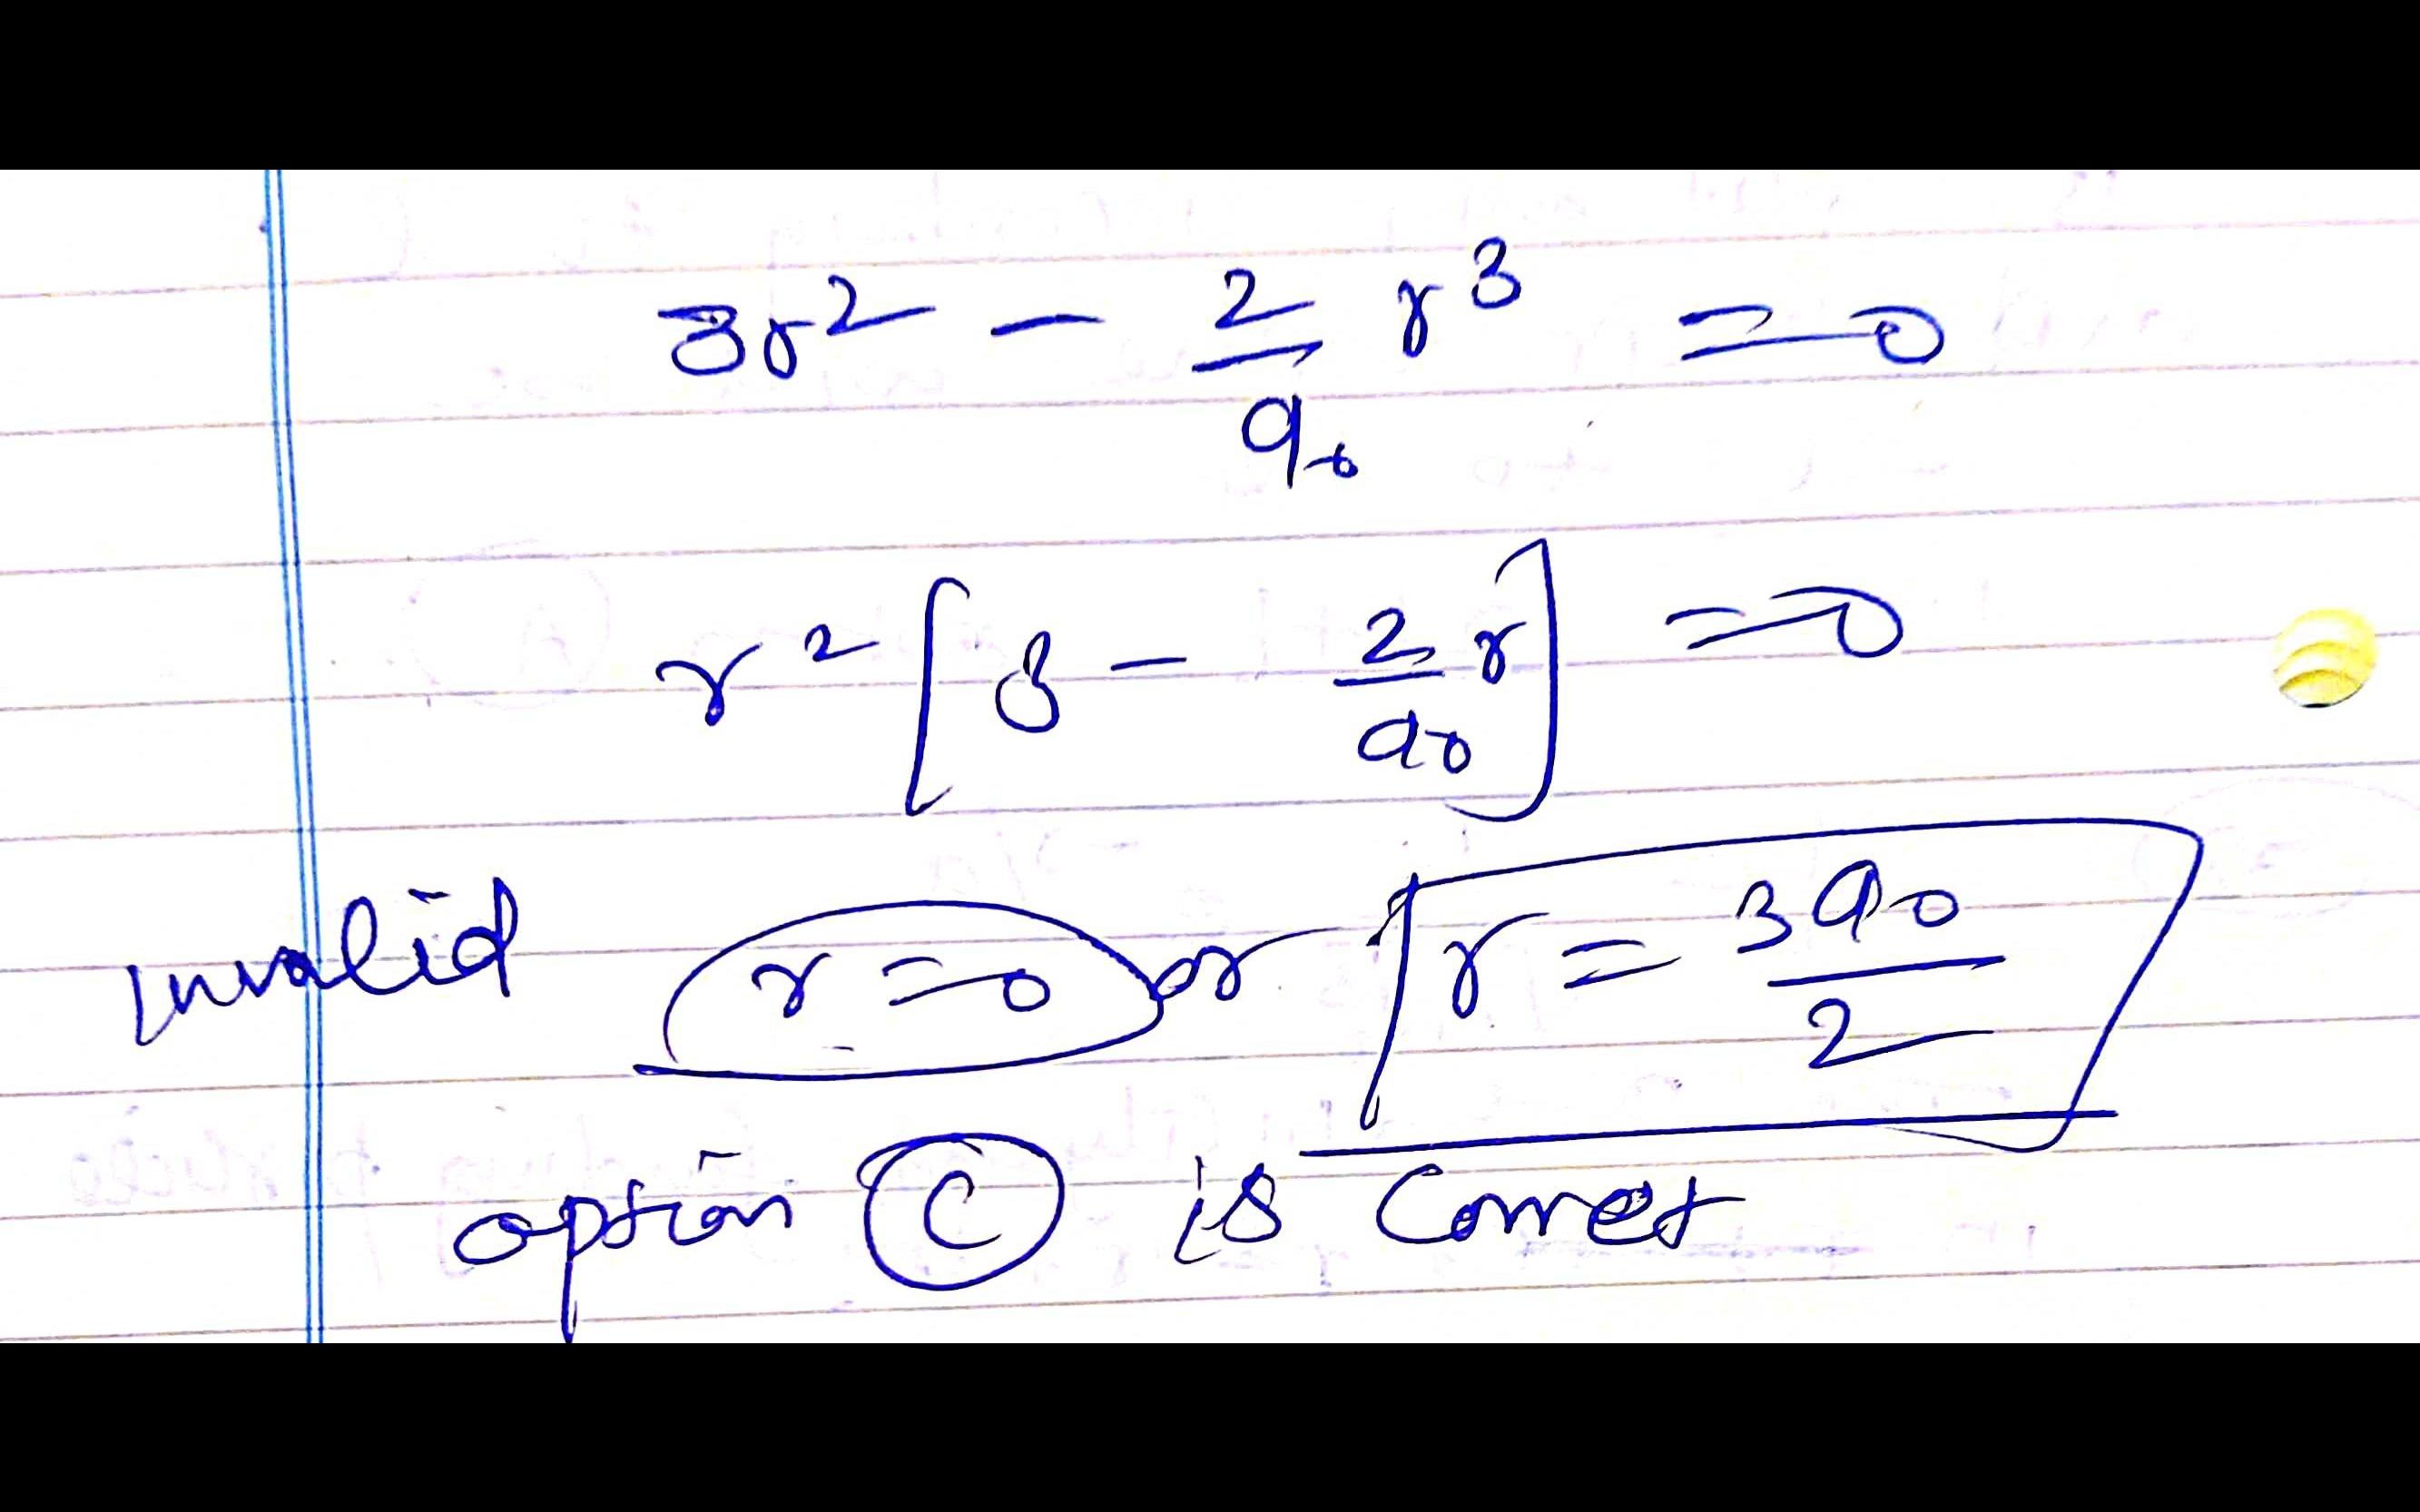 3r² - 2/a₀ r³ = 0
r² [3 - 2/a₀ r] = 0
invalid r = 0 or r = 3a₀/2
option C is Correct